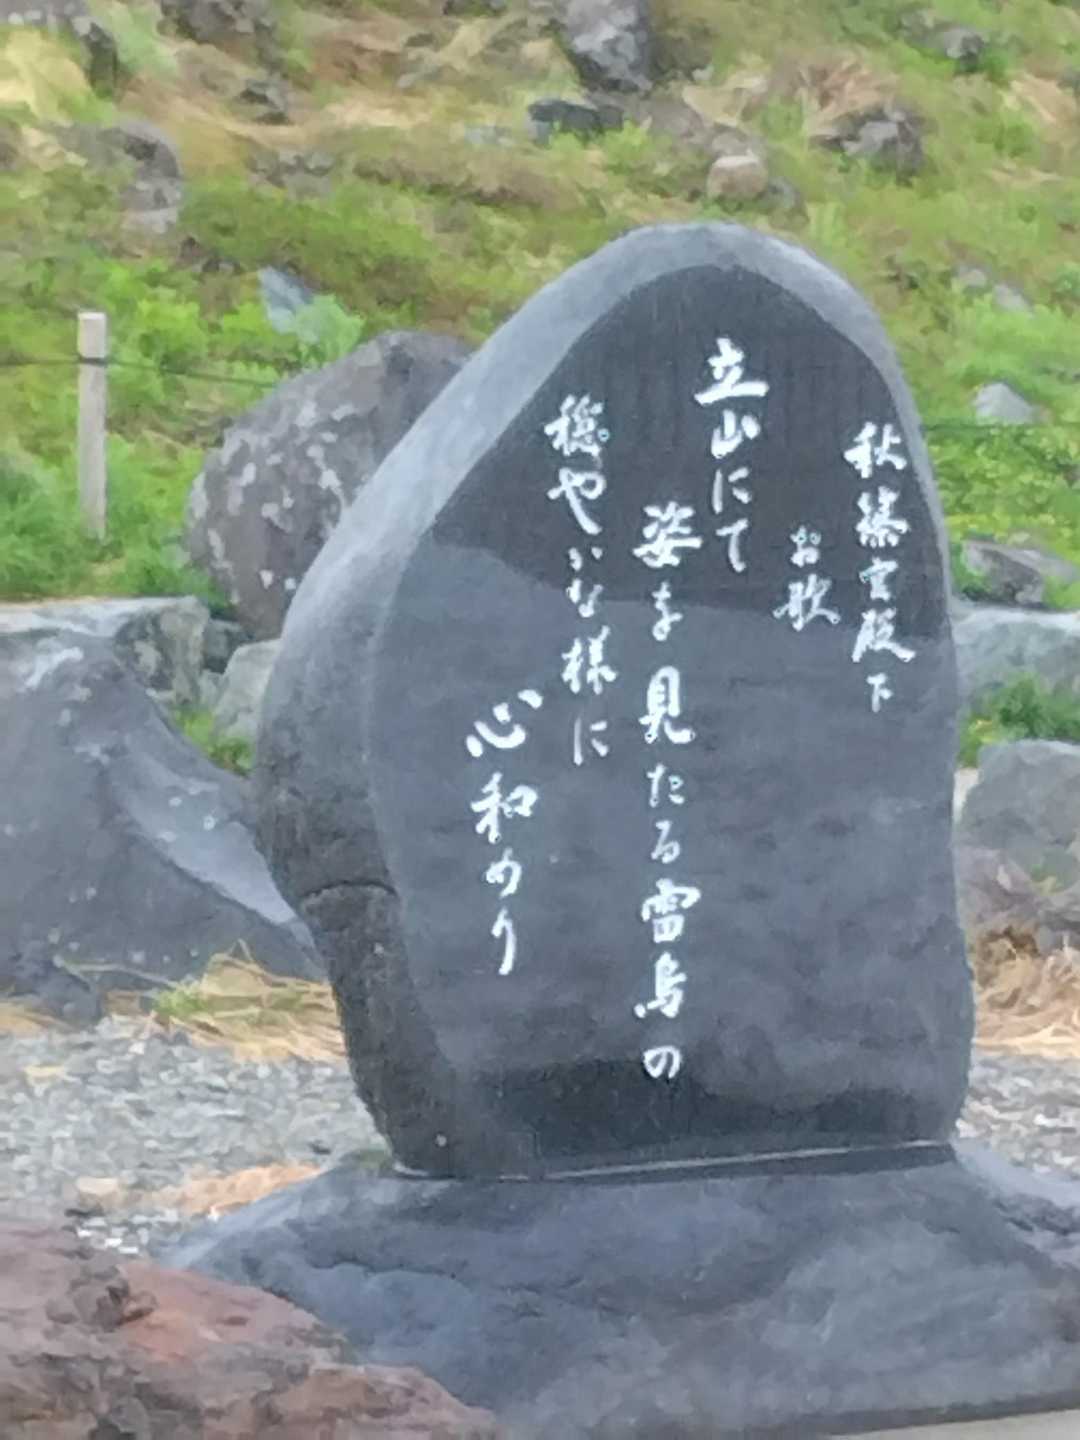 秋篠宮殿下
お歌
立山にて
姿を見たる雷鳥の
穏やかな様に
心和めり